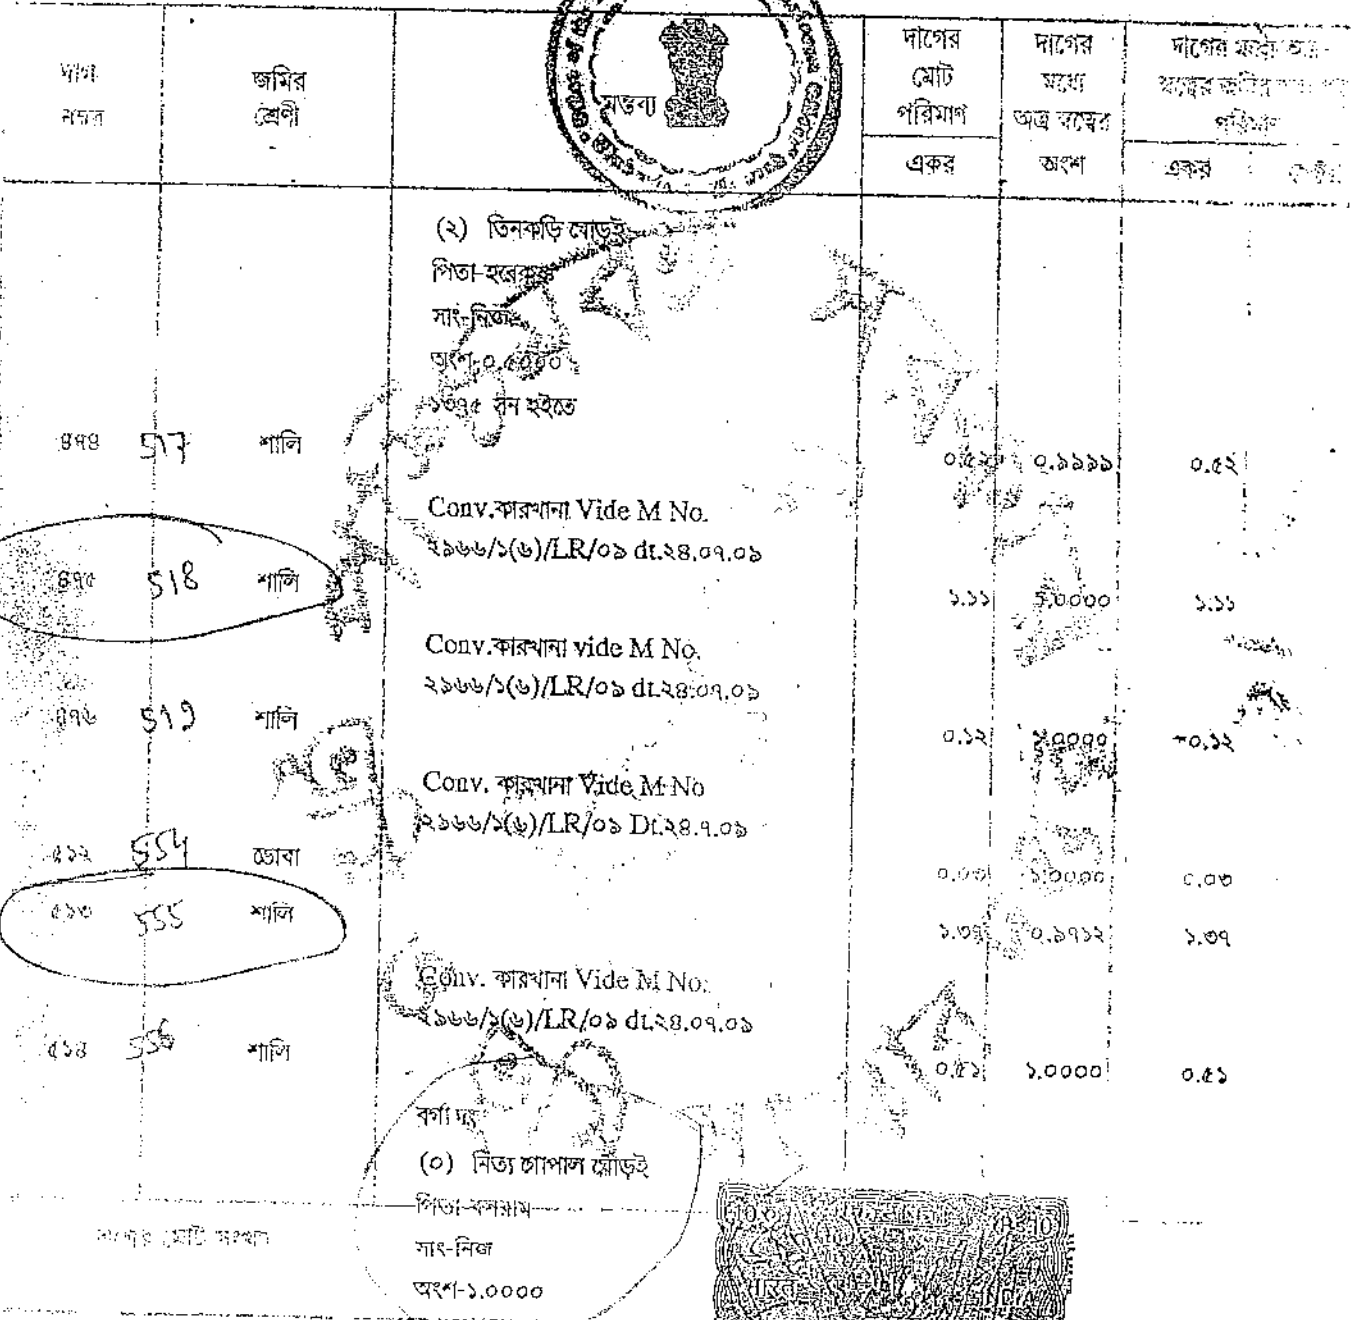 দাগ নম্বর
জমির শ্রেণী
মন্তব্য
দাগের মোট পরিমাণ
একর
দাগের মধ্যে অত্র স্বত্বের অংশ
দাগের মধ্যে অত্র
পরিমাণ
একর
(২) তিনকড়ি ঘোড়ই
পিতা-হরেকৃষ্ণ
সাং-নিজ
অংশ-০.৫০০০
১৩৭৫ সন হইতে
৪৭৪ 517 শালি ০.৫২ ০.৯৯৯৯ ০.৫২
Conv.কারখানা Vide M No.
২৯৬৬/১(৬)/LR/০৯ dt.২৪.০৭.০৯
৪৭৫ 518 শালি ১.১১ ১.০০০০ ১.১১
Conv.কারখানা vide M No.
২৯৬৬/১(৬)/LR/০৯ dt.২৪.০৭.০৯
৪৭৬ 519 শালি ০.১২ ১.০০০০ ০.১২
Conv. কারখানা Vide M No
২৯৬৬/১(৬)/LR/০৯ Dt.২৪.৭.০৯
৫১২ 554 ডোবা ০.০৩ ১.০০০০ ০.০৩
৫১৩ 555 শালি ১.৩৭ ০.৯৭১২ ১.৩৭
Conv. কারখানা Vide M No.
২৯৬৬/১(৬)/LR/০৯ dt.২৪.০৭.০৯
৫১৪ 556 শালি ০.৫১ ১.০০০০ ০.৫১
বর্গা দঃ
(০) নিত্য গোপাল ঘোড়ই
পিতা-বলরাম
সাং-নিজ
অংশ-১.০০০০
দাগের মোট সংখ্যা
भारत INDIA